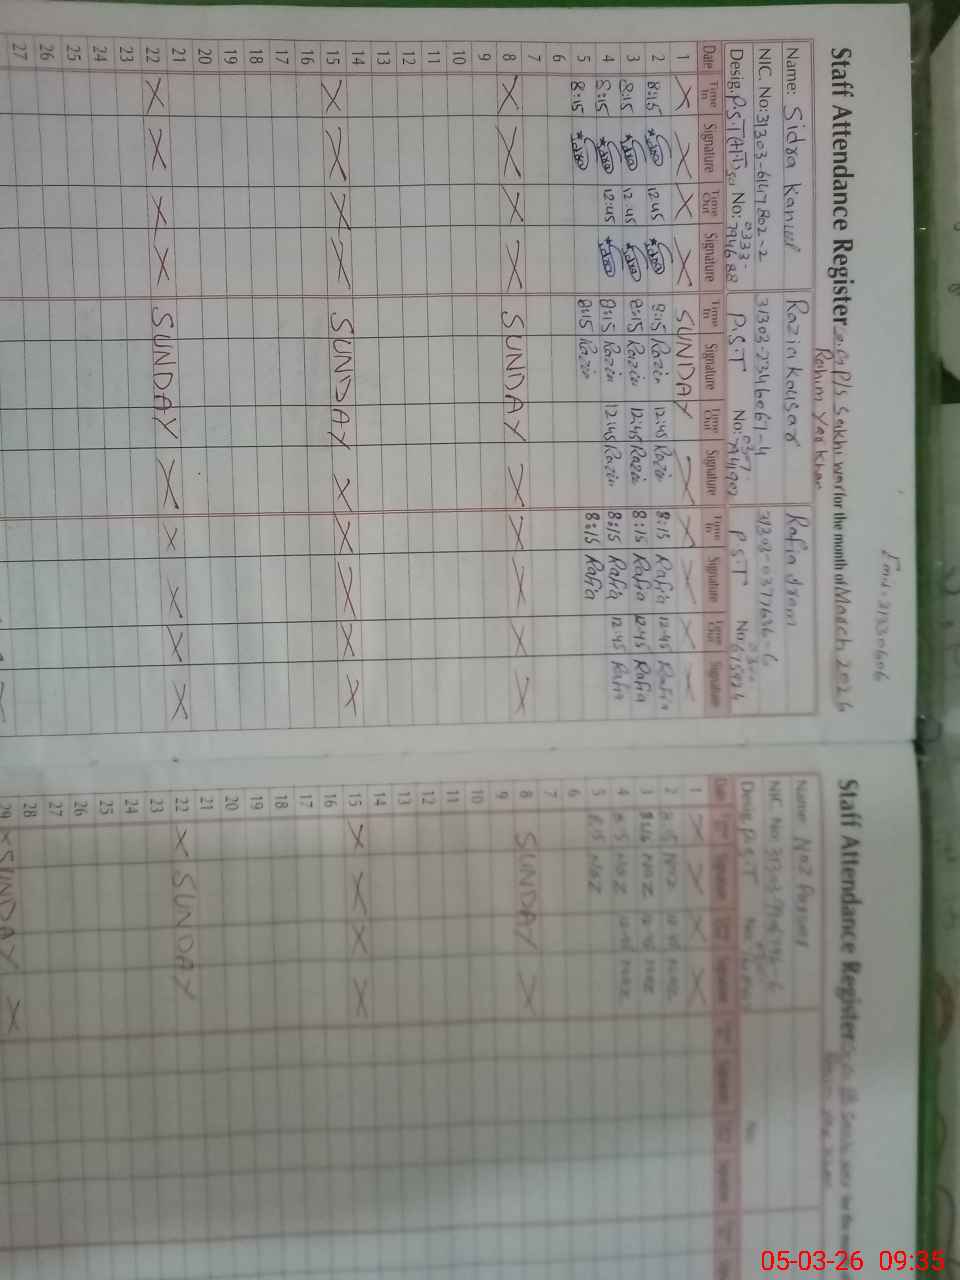 Emis: 31330606
Staff Attendance Register G.G P/S Sakhi war for the month of March 2026
Rahim Yar Khan
Name: Sidra Kanwal Razia Kausar Rafia Iram
NIC. No: 31303-6147802-2 31303-7346067-4 31303-0377636-6
Desig. P.S.T No: 0333- P.S.T No: P.S.T No:
Date Time In Signature Time Out Signature Time In Signature Time Out Signature Time In Signature Time Out Signature
1 X X X X SUNDAY X X X X X
2 8:15 Sidra 12:45 Sidra 8:15 Razia 12:45 Razia 8:15 Rafia 12:45 Rafia
3 8:15 Sidra 12:45 Sidra 8:15 Razia 12:45 Razia 8:15 Rafia 12:45 Rafia
4 8:15 Sidra 12:45 Sidra 8:15 Razia 12:45 Razia 8:15 Rafia 12:45 Rafia
5 8:15 Sidra 8:15 Razia 8:15 Rafia
6
7
8 X X X X SUNDAY X X X X X
9
10
11
12
13
14
15 X X X X SUNDAY X X X X X
16
17
18
19
20
21
22 X X X X SUNDAY X X X X X
23
24
25
26
27
Staff Attendance Register
Name: Naz
NIC. No: 31303-
Desig. P.S.T No:
1 X X X X
2 8:15 Naz 12:45 Naz
3 8:15 Naz 12:45 Naz
4 8:15 Naz 12:45 Naz
5 8:15 Naz
6
7
8 SUNDAY X
9
10
11
12
13
14
15 X X X X
16
17
18
19
20
21
22 X SUNDAY
23
24
25
26
27
28
29 X SUNDAY X
05-03-26 09:35